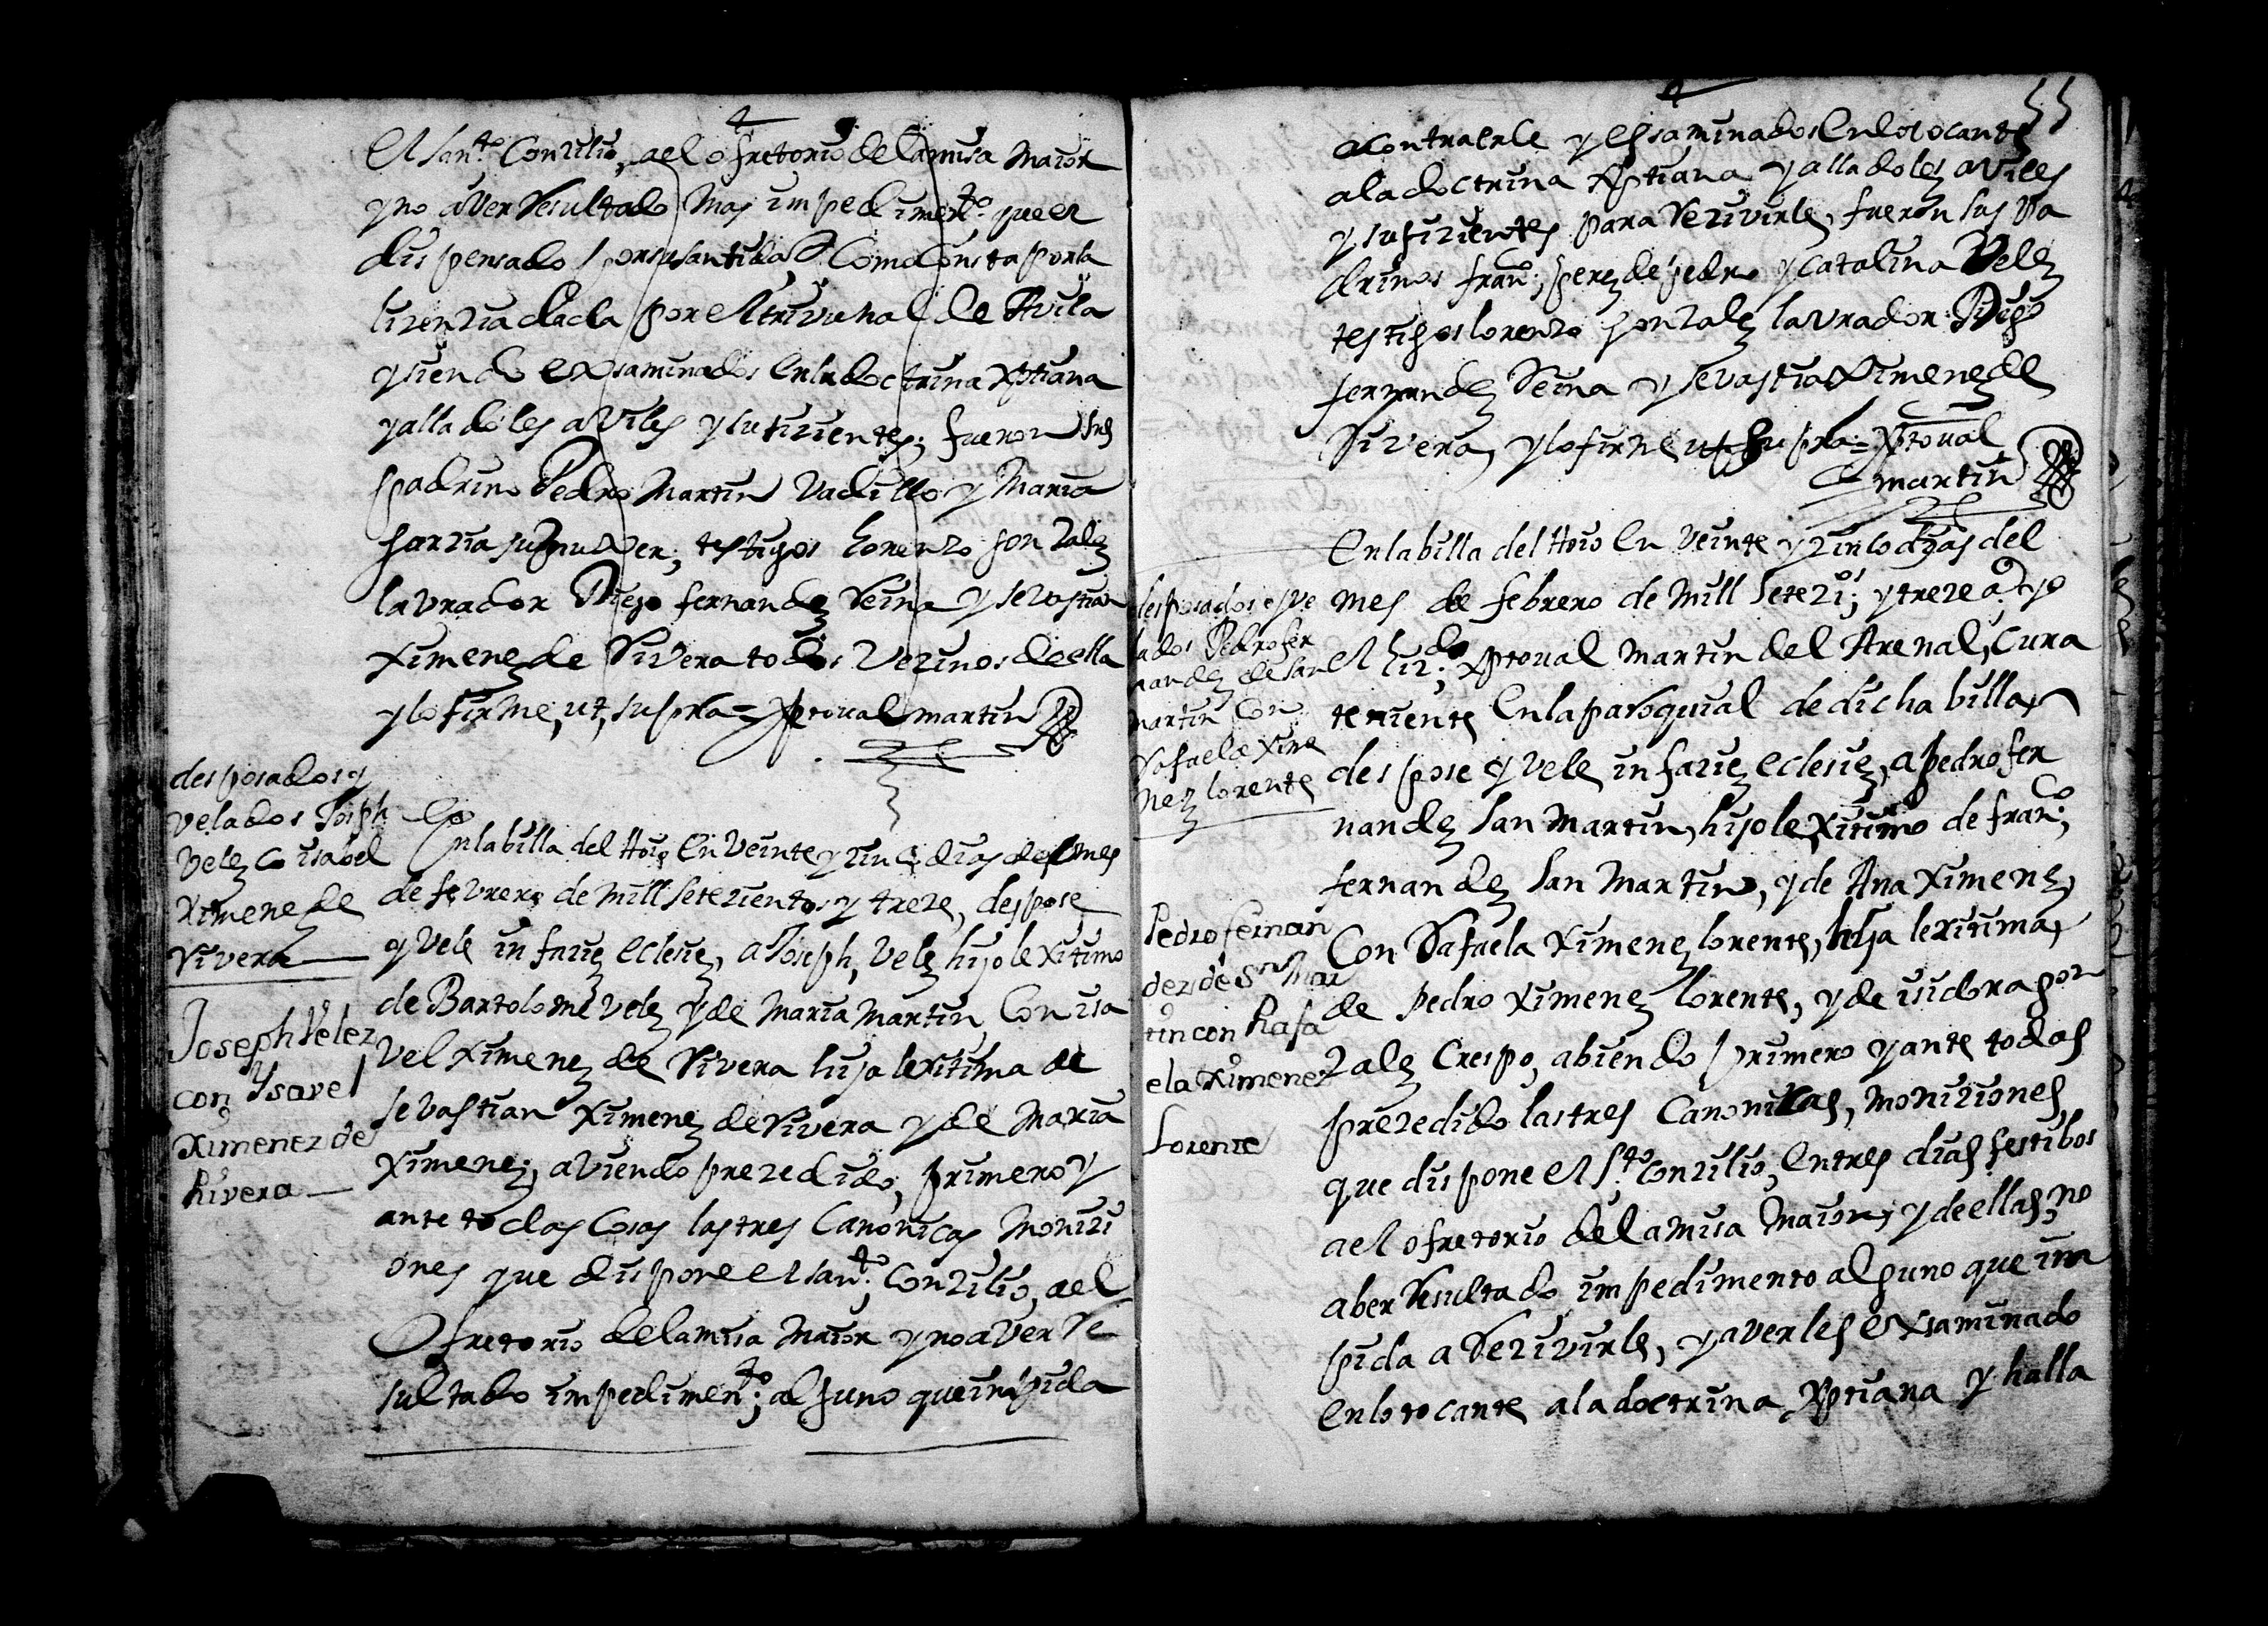 el san.to Conzilio, ael ofretorio de la misa maior
y no aver Resultado mas impedimen.to que el
dispensado por su santidad Como consta por la
lizenzia dada por el trivunal de Avila
y siendo exsaminados en la doctrina Xptiana
y alladoles aviles y sufizientes; fueron sus
padrino Pedro Martin Vadillo y Maria
garzia su muxer; testigos Lorenzo gonzalez
lavrador Diego fernandez Reina y sevastian
Ximenez de Rivera todos vezinos de ella
y lo firme, ut, supra = Xptoual martin
desposados y
velados Josph
velez Co isabel
Ximenez de
Rivera
Joseph Velez
con Ysavel
Ximenez de
Rivera
En la billa del Hoio En veinte y zinco dias del mes
de febrero de mill setezientos y treze, despose
y vele in fazie eclesie, a Joseph, velez hijo lexitimo
de Bartolome velez y de Maria Martin Con isa
vel Ximenez de Rivera hija lexitima de
sevastian Ximenez de Rivera y de Maria
Ximenez; aviendo prezedido, primero y
ante todas Cosas las tres Canonicas Monizi
ones que dispone el san.to; Conzilio, ael
Ofretorio de la misa Maior y no aver Re
sultado impedimen.to; alguno que impida
55
acontraerle y exsaminados En lo tocante
a la doctrina Xptiana y alladoles aviles
y sufizientes para Rezivirle, fueron sus pa
drinos fran.co; perez de pedro y Catalina Velez
testigos lorenzo gonzalez lavrador Diego
fernandez Reina y sevastian Ximenez de
Rivera, y lo firme ut supra = Xptoual
martin
desposados y ve
lados Pedro fer
nandez de san
martin Con
Rafaela Xime
nez lorente
Pedro fernan
dez de S.n Mar
tin con Rafa
ela Ximenez
Lorente
En la billa del Hoio En veinte y zinco dias del
mes de febrero de mill setezi.os; y treze a.s yo
el Liz.do; Xptoual Martin del Arenal, Cura
teniente En la paroquial de dicha billa
despose y vele in fazie eclesie, a Pedro fer
nandez San Martin, hijo lexitimo de fran.co;
fernandez San Martin, y de Ana Ximenez,
Con Rafaela Ximenez lorente, hija lexitima,
de Pedro Ximenez lorente, y de isidora gon
zalez Crespo, abiendo primero y ante todas
prezedido las tres Canonicas, moniziones
que dispone el S.to Conzilio, En tres dias festibos
ael ofretorio de la misa Maior, y de ellas no
aber Resultado impedimento alguno que im
pida a Rezivirle, y averles exsaminado
En lo tocante a la doctrina Xptiana y halla